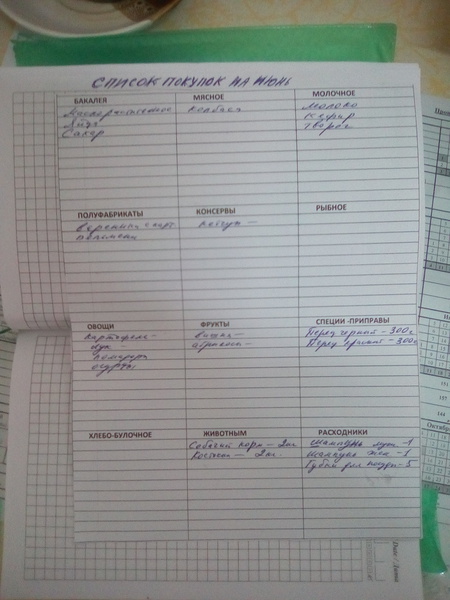 СПИСОК ПОКУПОК НА ИЮНЬ
БАКАЛЕЯ
Сахар
МЯСНОЕ
колбаса
МОЛОЧНОЕ
Молоко
Кефир
Творог
ПОЛУФАБРИКАТЫ
пельмени
КОНСЕРВЫ
кетчуп —
РЫБНОЕ
ОВОЩИ
картофель-
лук —
помидоры
огурцы
ФРУКТЫ
вишня-
абрикосы-
СПЕЦИИ -ПРИПРАВЫ
Перец черный - 300г
Перец красный - 300г
ХЛЕБО-БУЛОЧНОЕ
ЖИВОТНЫМ
Собачий корм - 2кг
Косточки — 2кг.
РАСХОДНИКИ
Шампунь муж -1
Шампунь жен -1
Губки для посуды-5
Date / Дата